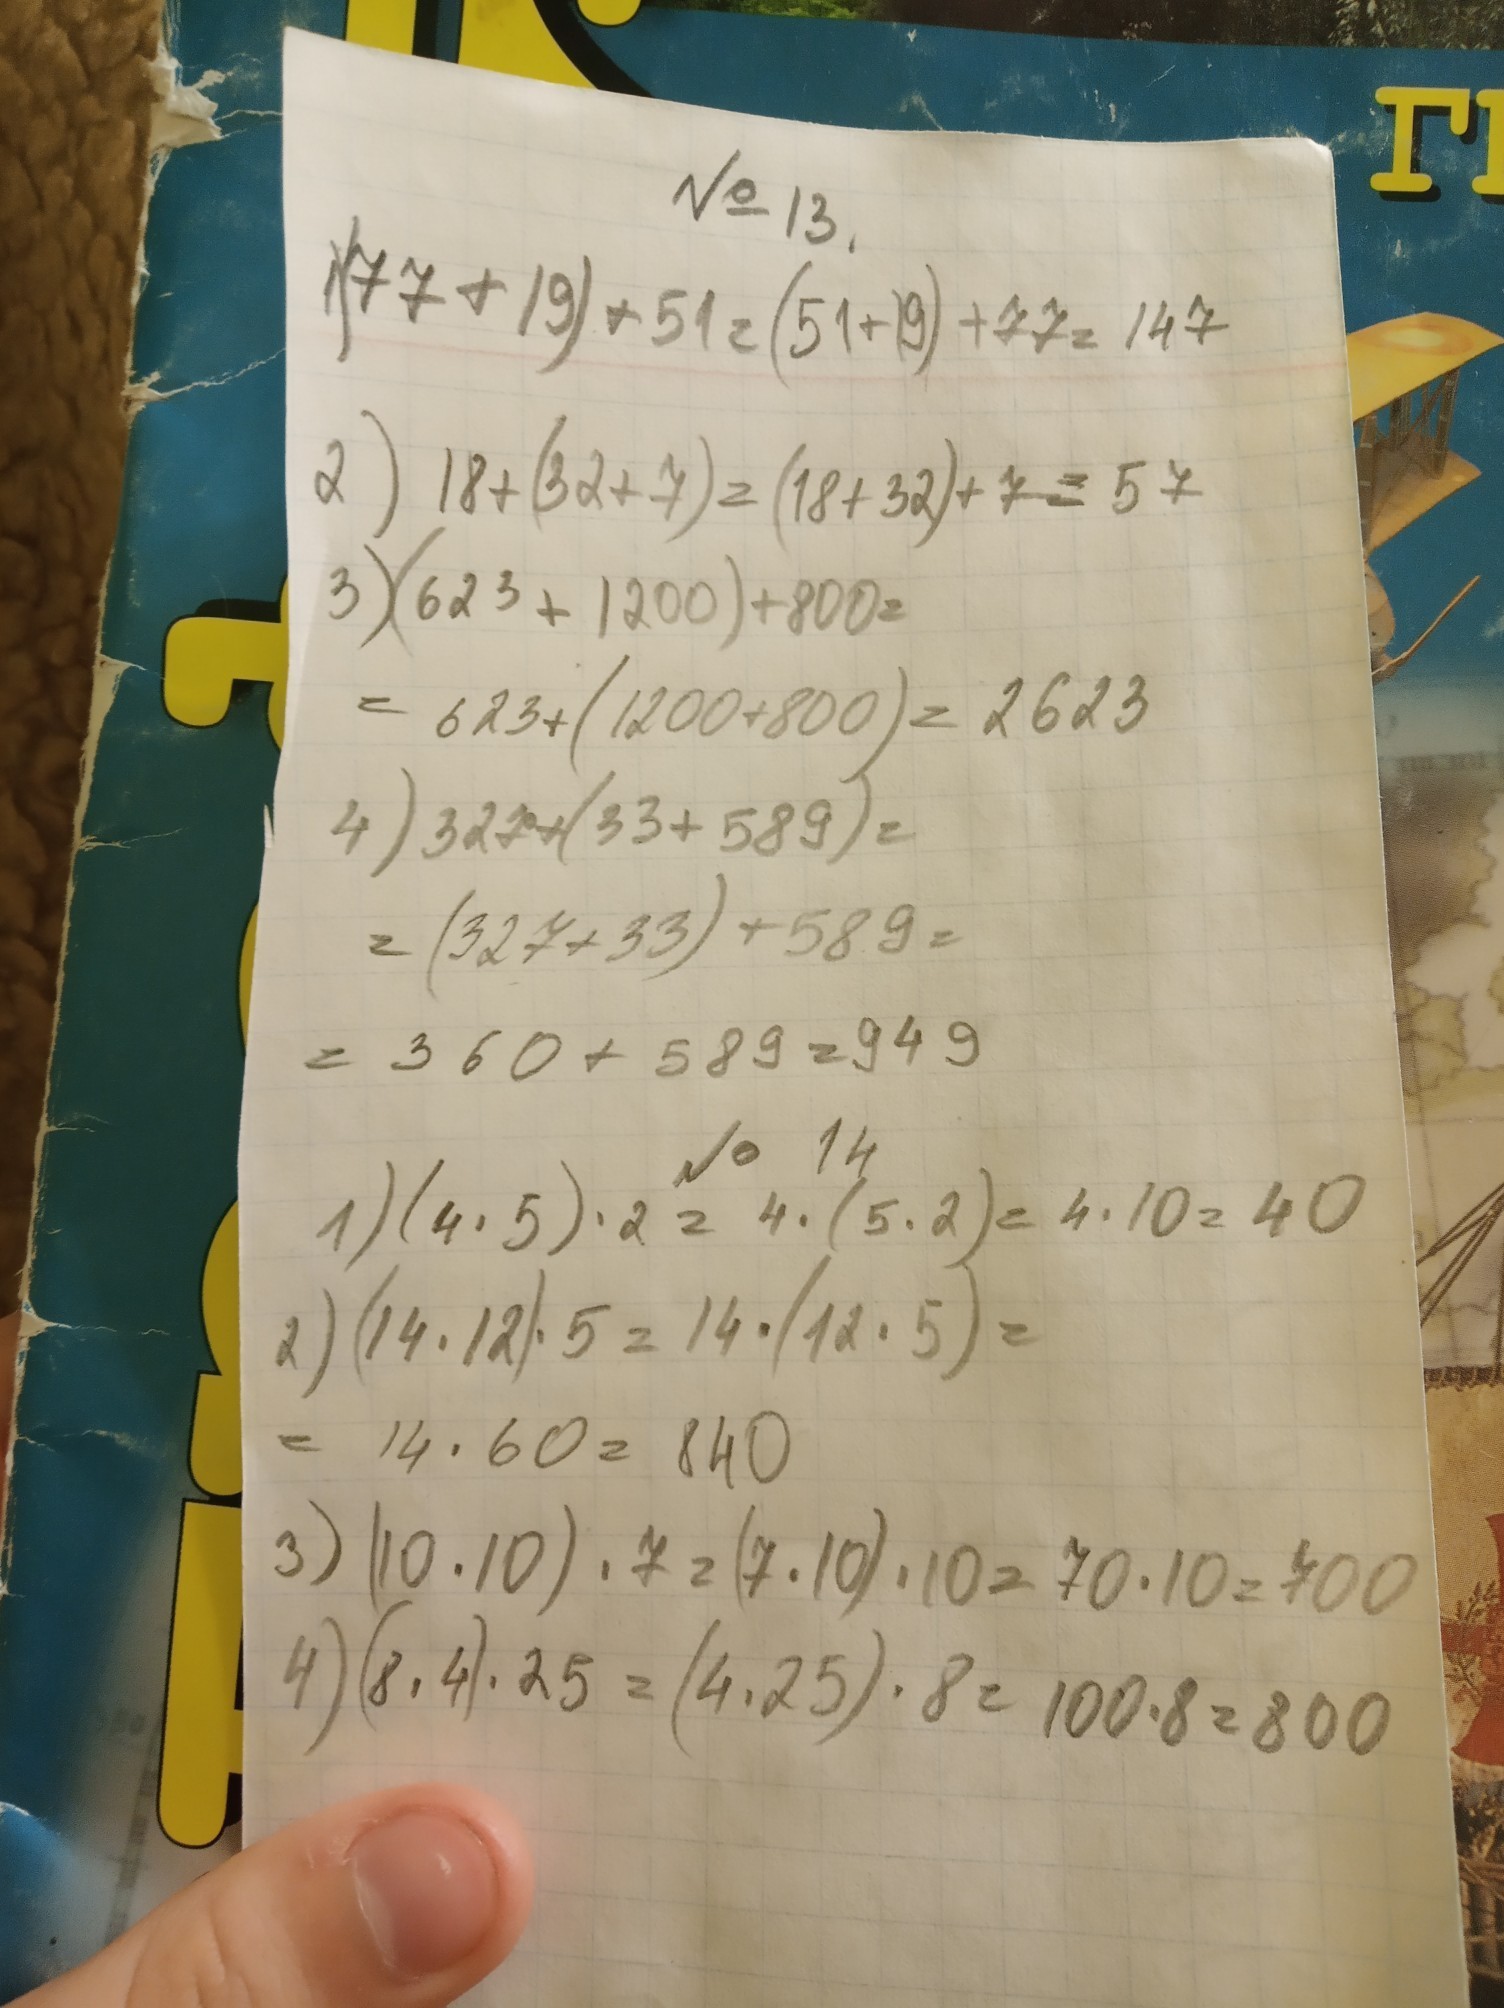 № 13.
1)(77+19)+51=(51+19)+77=147
2) 18+(32+7)=(18+32)+7=57
3)(623+1200)+800=
= 623+(1200+800)=2623
4)327+(33+589)=
=(327+33)+589=
= 360+589=949
№ 14
1)(4·5)·2=4·(5·2)=4·10=40
2)(14·12)·5=14·(12·5)=
= 14·60=840
3)(10·10)·7=(7·10)·10=70·10=700
4)(8·4)·25=(4·25)·8=100·8=800